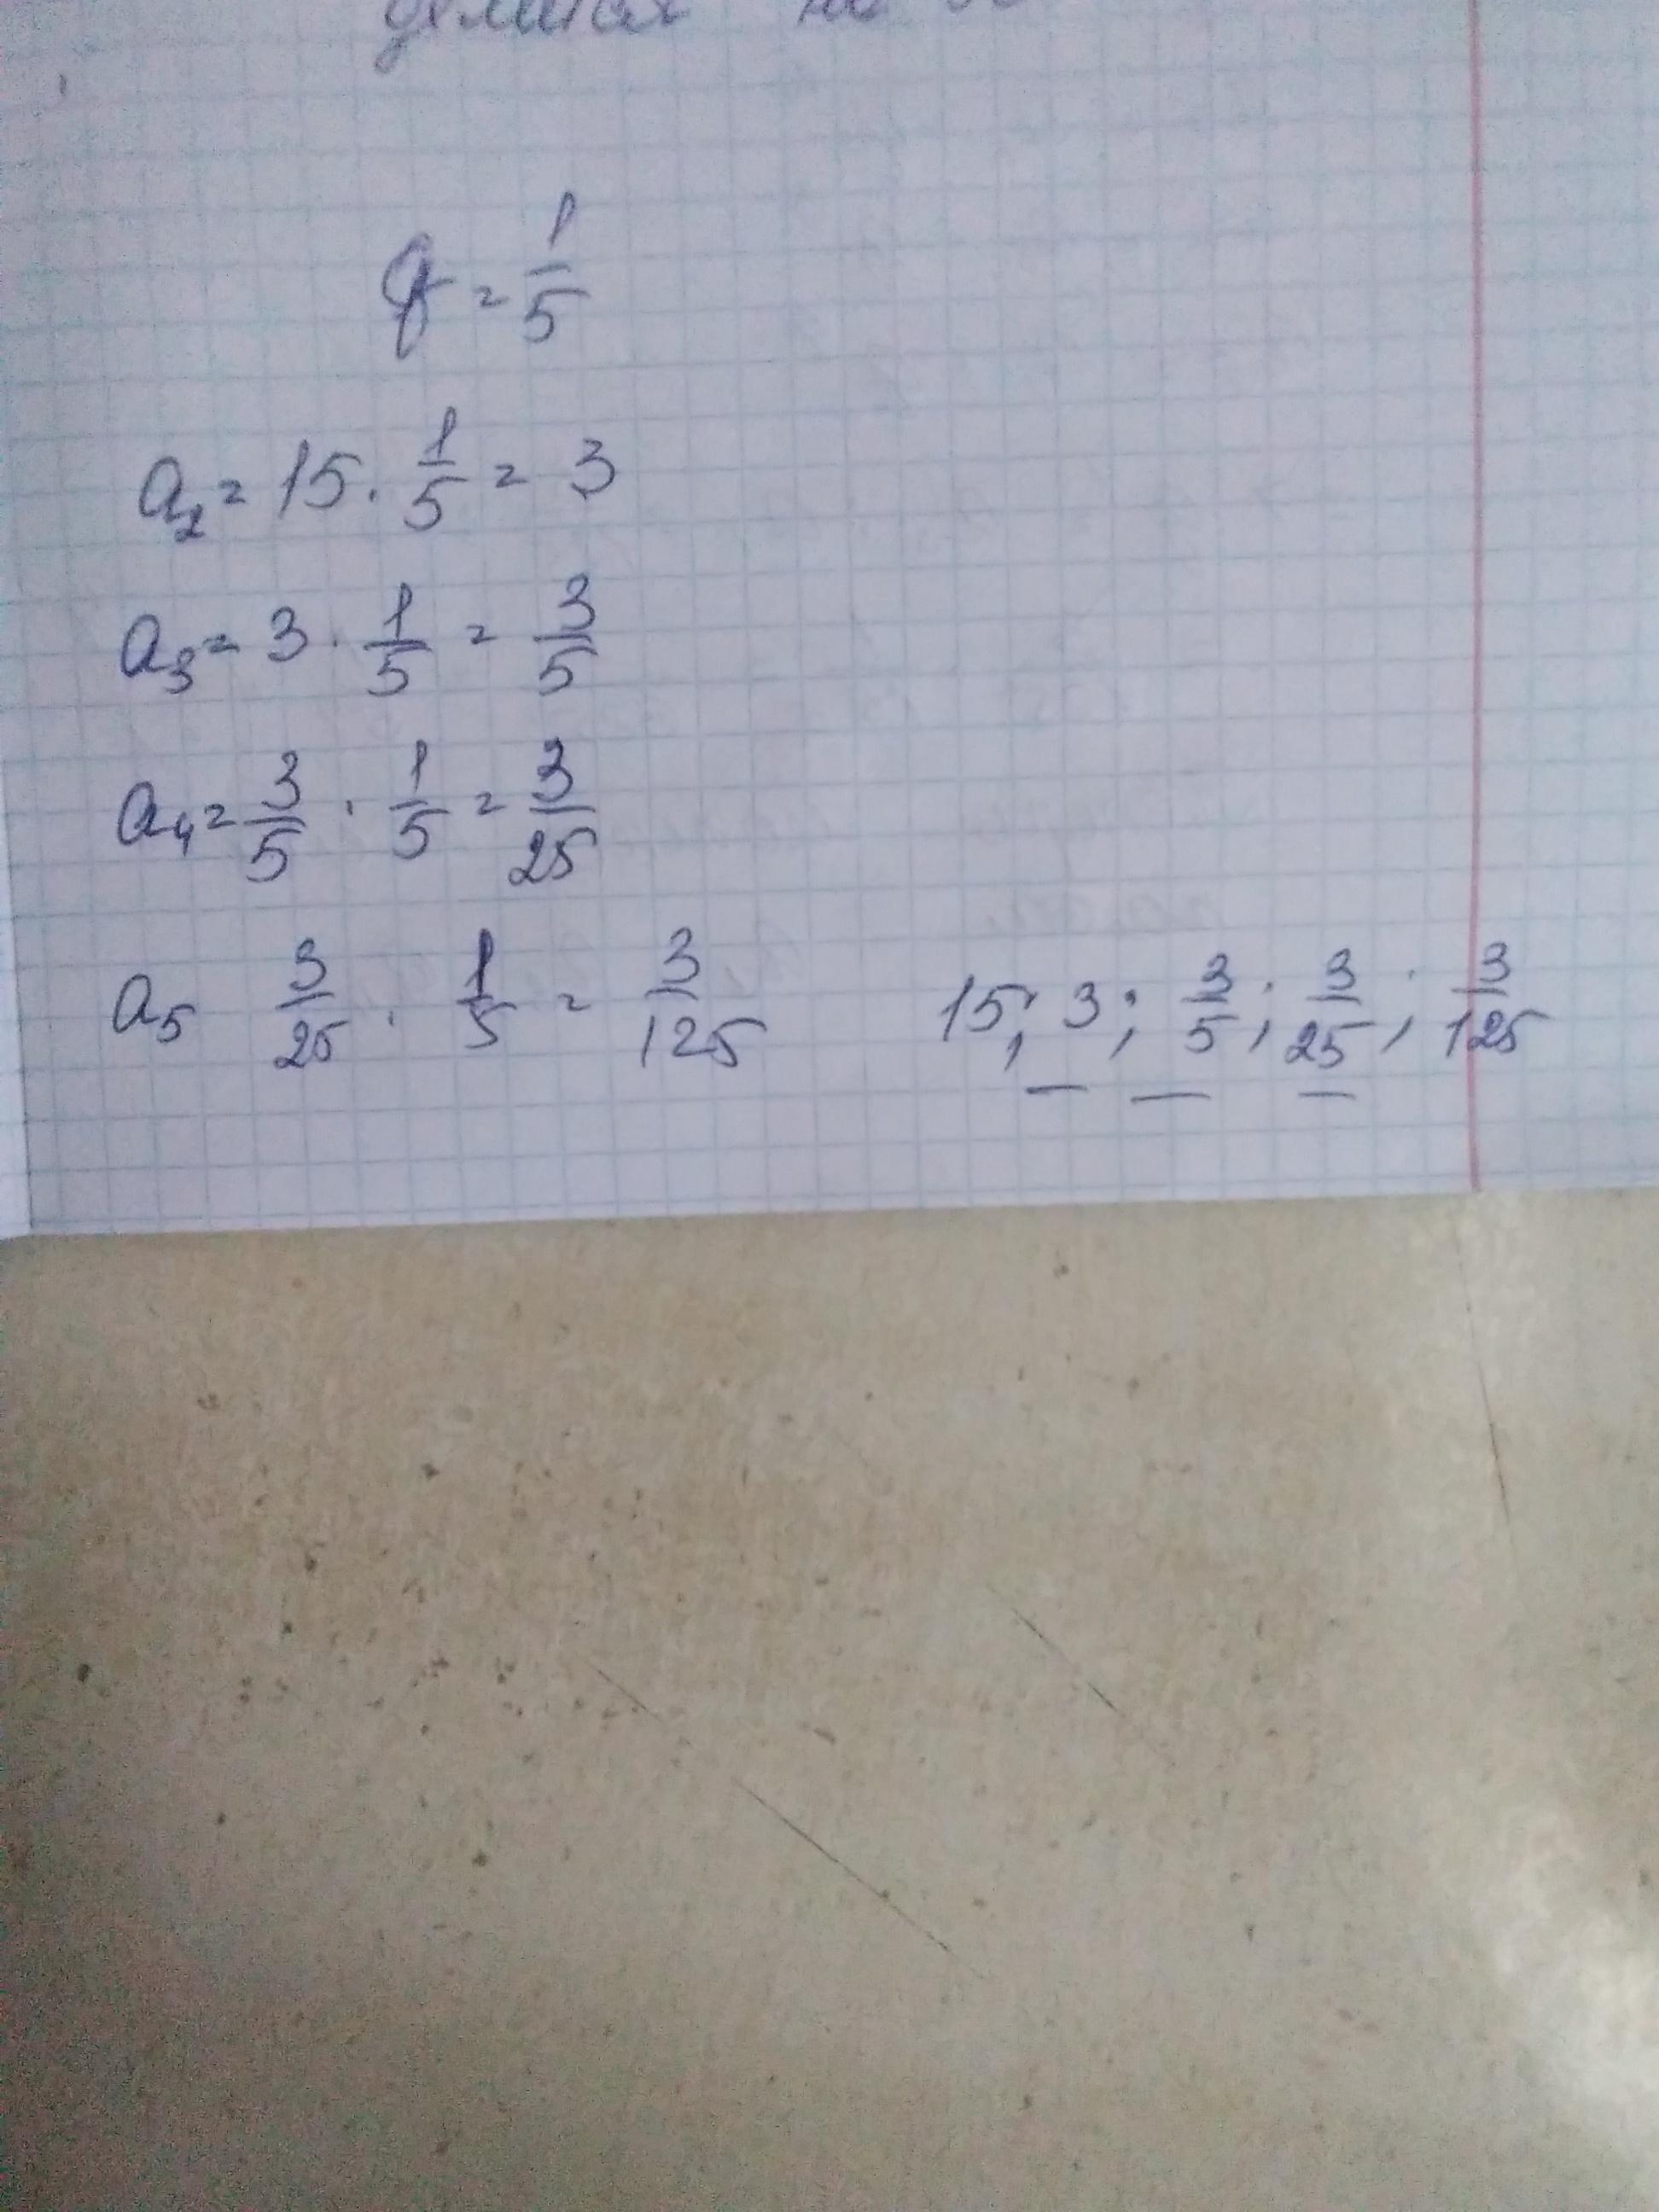 делится на
q = 1/5
a₂ = 15 · 1/5 = 3
a₃ = 3 · 1/5 = 3/5
a₄ = 3/5 · 1/5 = 3/25
a₅ 3/25 · 1/5 = 3/125
15; 3; 3/5; 3/25; 3/125